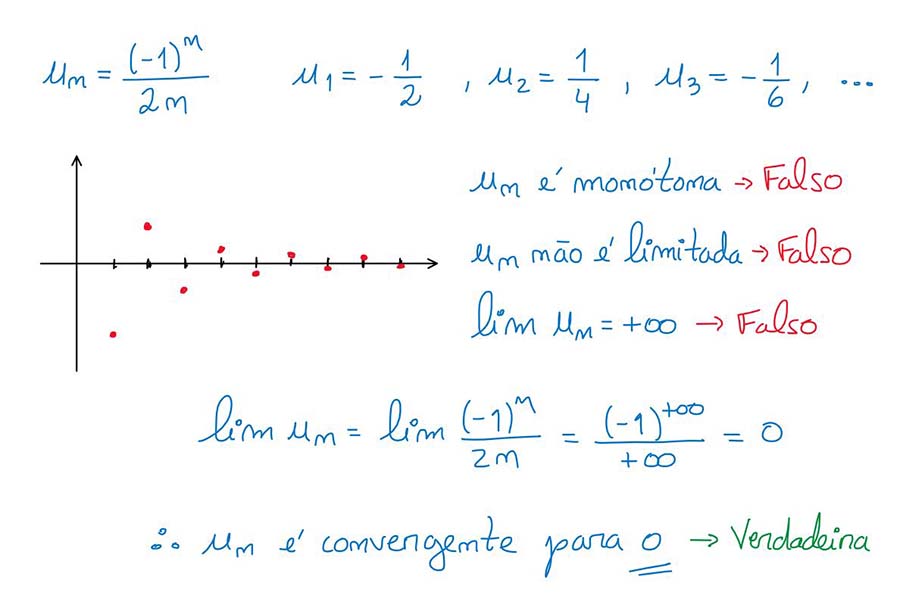 uₙ = (-1)ⁿ / 2n   u₁ = - 1/2 , u₂ = 1/4 , u₃ = - 1/6 , ...
uₙ é monótona → Falso
uₙ não é limitada → Falso
lim uₙ = +∞ → Falso
lim uₙ = lim (-1)ⁿ / 2n = (-1)^+∞ / +∞ = 0
∴ uₙ é convergente para 0 → Verdadeira